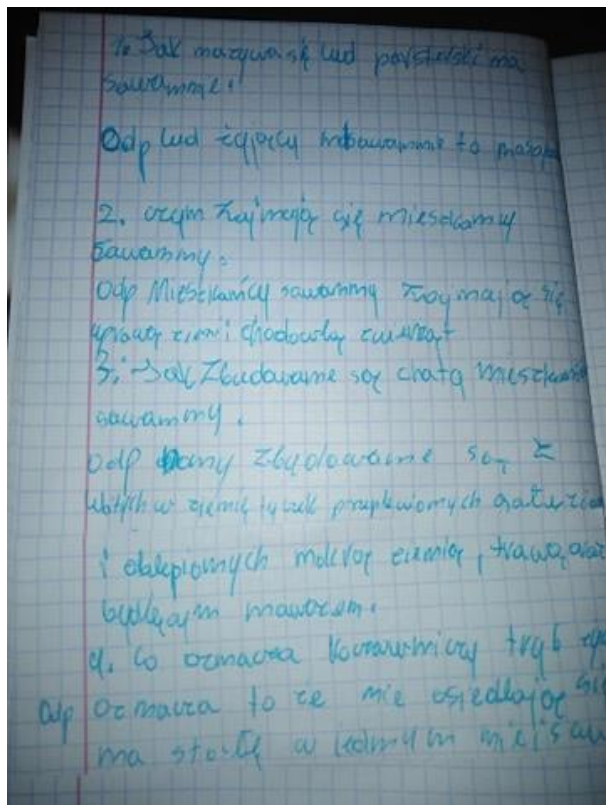 1. Jak nazywa się lud pasterski na
sawannie.
Odp lud żyjący na sawannie to masaj
2. czym zajmują się mieszkańcy
sawanny.
Odp Mieszkańcy sawanny zajmają się
uprawą ziemi chodowlą zwierząt
3. Jak zbudowane są chatą mieszkańc
sawanny.
odp domy zbudowane są z
wbitych w ziemię tyczek przeplecionych gałęzia
i oblepionych mokrą ziemią, trawą oraz
bydlęcym nawozem.
4. Co oznacza koczowniczy tryb ży
Odp oznacza to że nie osiedlają się
na stałe w jednym miejscu